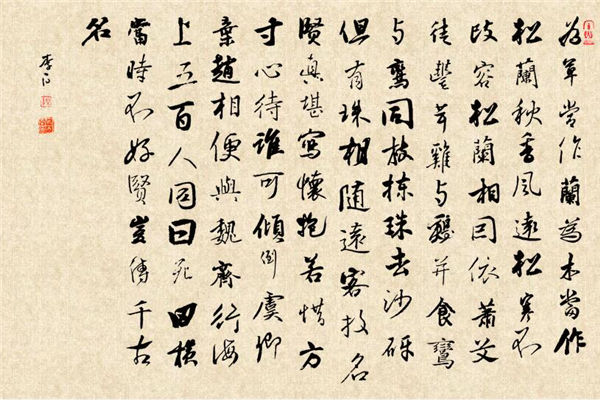 為草當作蘭為木當作
松蘭秋香風遠松寒不
改容松蘭相因依蕭艾
徒豐茸雞与雞并食鸞
与鸞同枝揀珠去沙礫
但有珠相隨遠客投名
賢真堪寫懷抱若惜方
寸心待誰可傾倒虞卿
棄趙相便與魏齊行海
上五百人同日死田橫
當時不好賢豈傳千古
名
李白